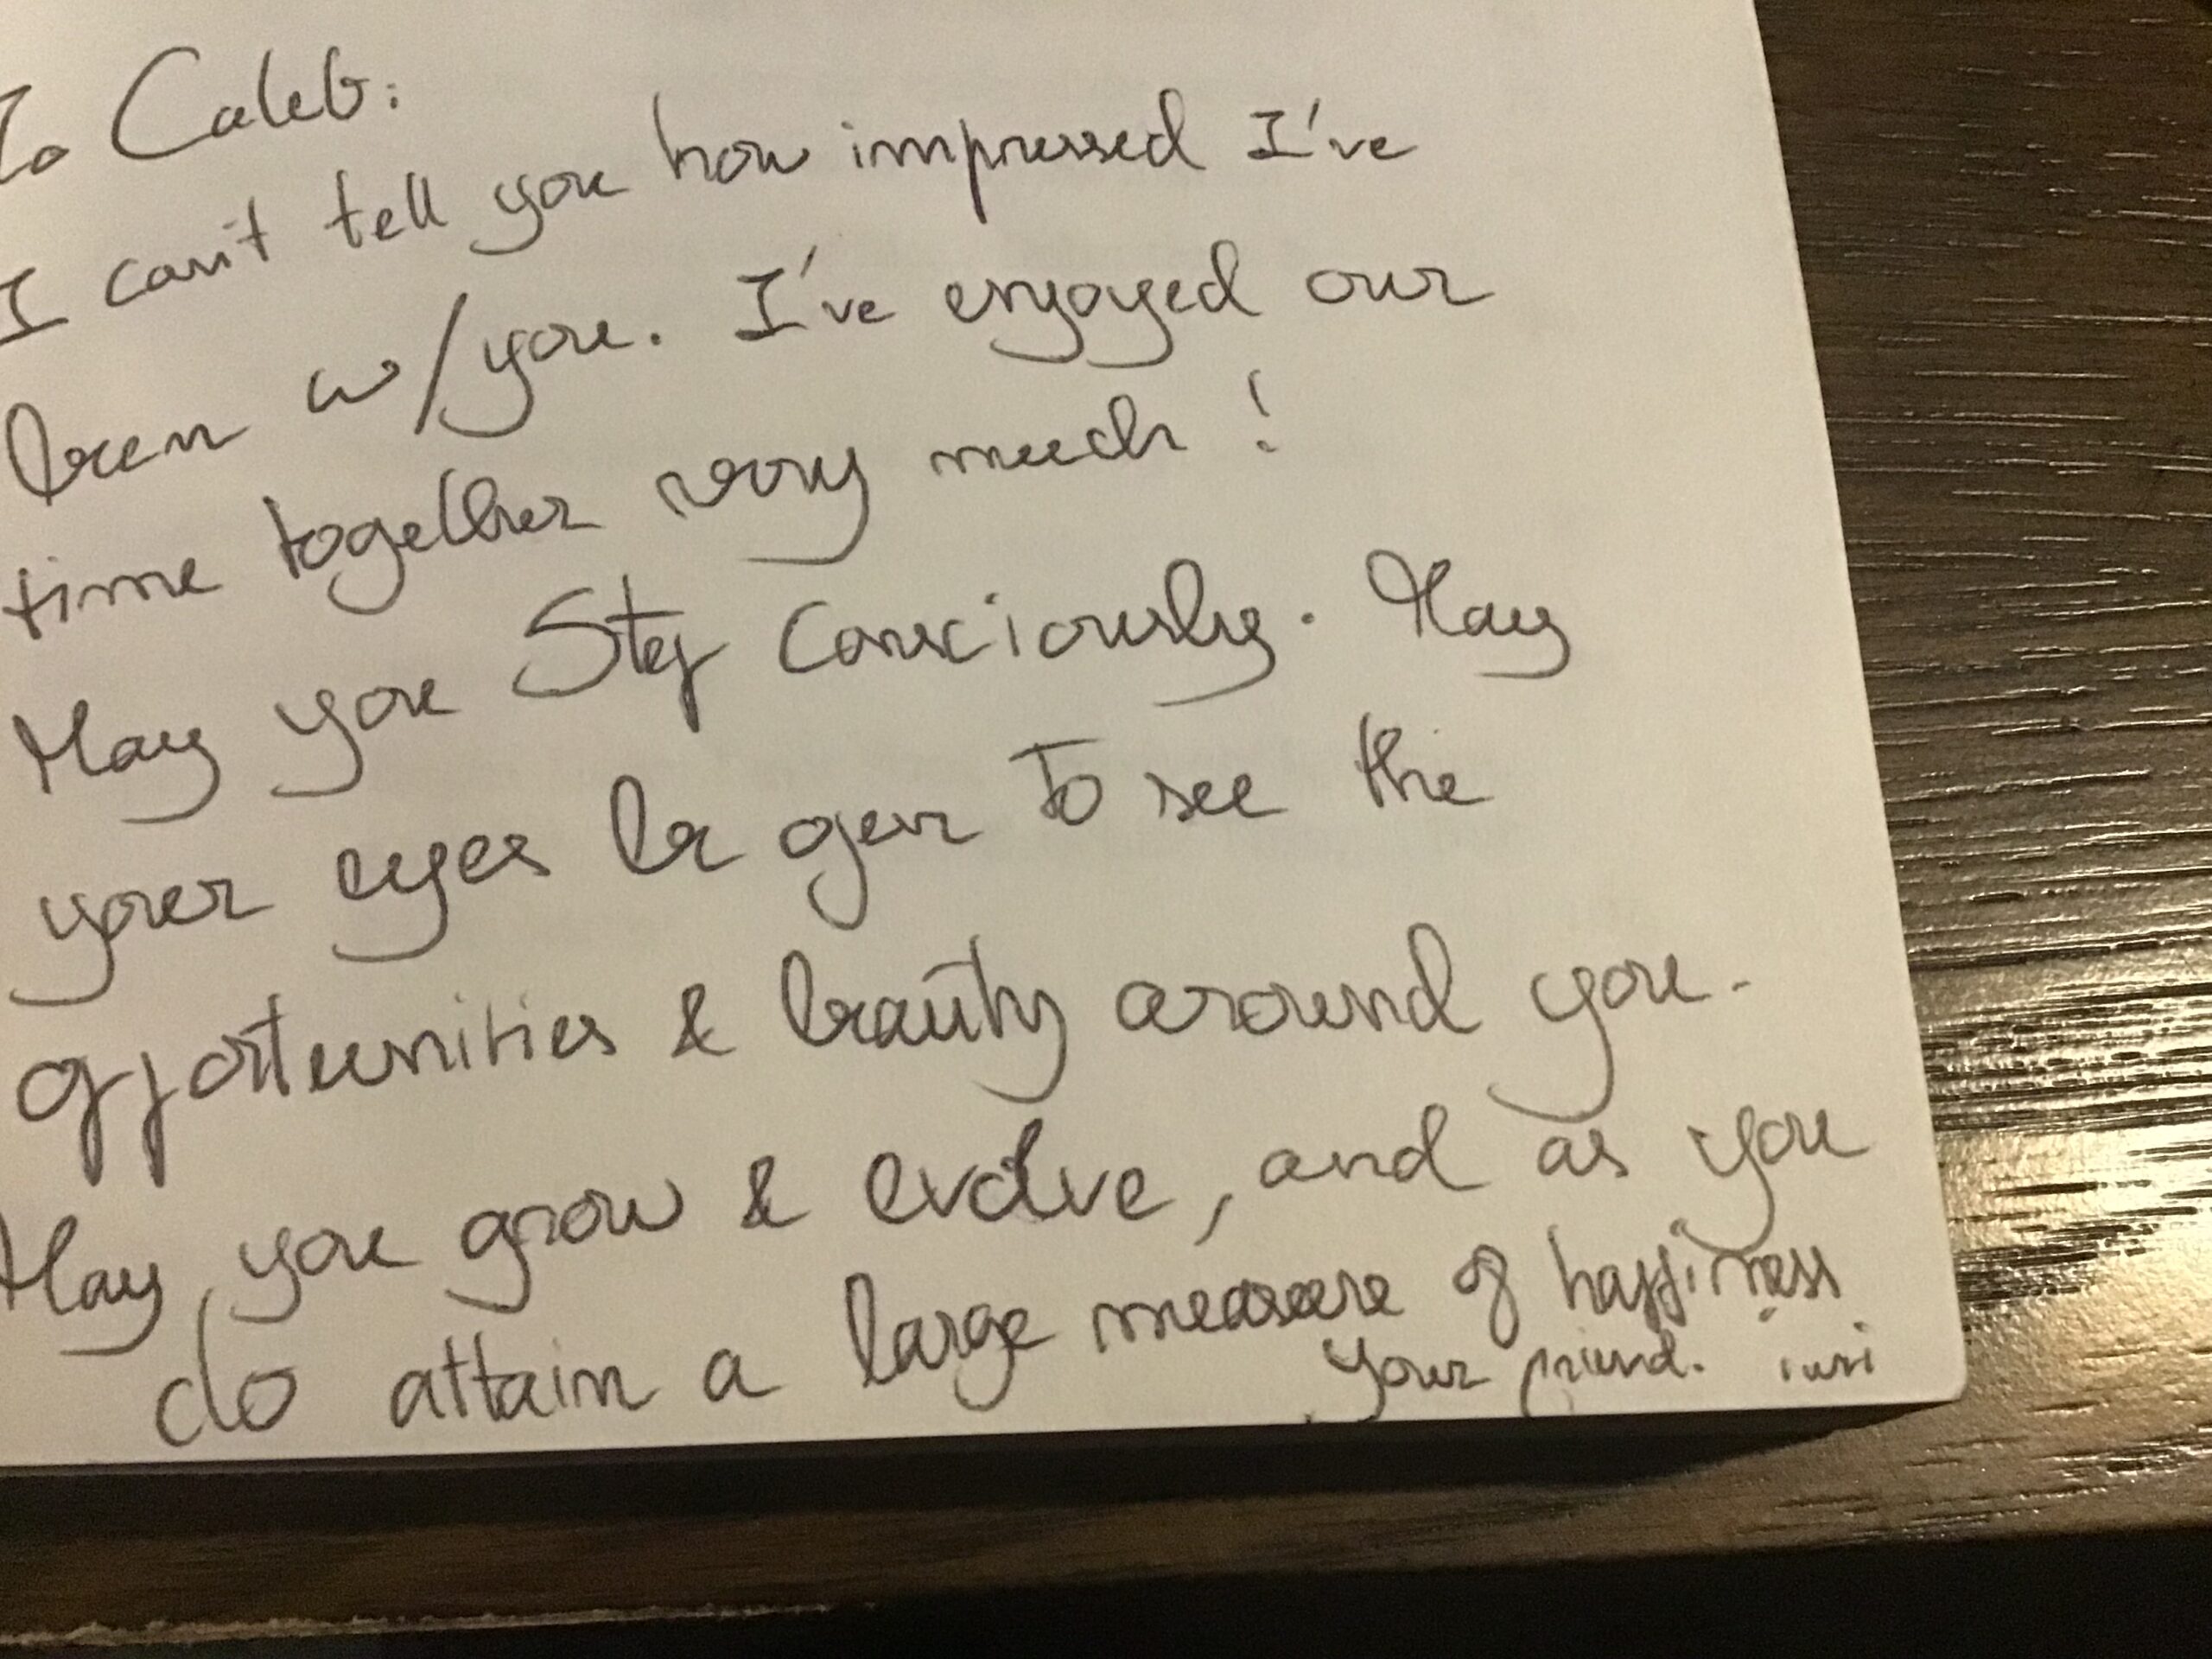 To Caleb:
I can't tell you how impressed I've
been w/you. I've enjoyed our
time together very much!
May you Step Consciously. May
your eyes be open to see the
opportunities & beauty around you.
May you grow & evolve, and as you
do attain a large measure of happiness
Your friend.